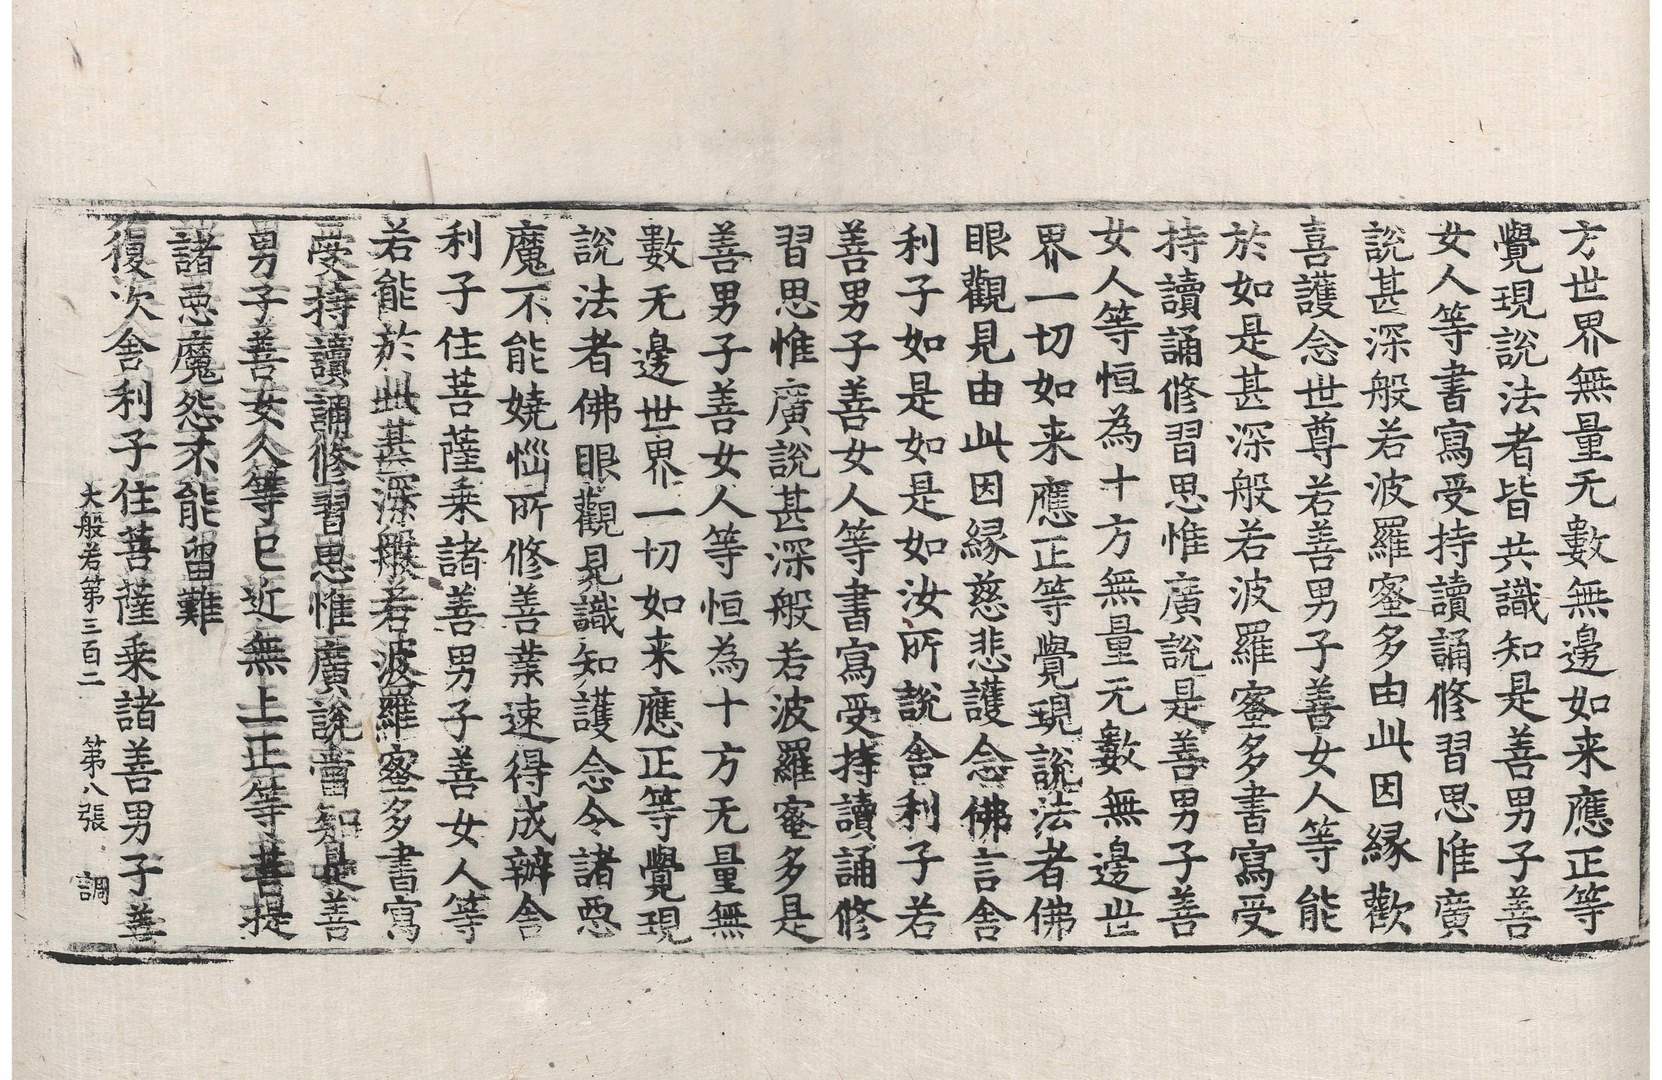 方世界無量无數無邊如来應正等
覺現說法者皆共識知是善男子善
女人等書寫受持讀誦修習思惟廣
說甚深般若波羅蜜多由此因緣歡
喜護念世尊若善男子善女人等能
於如是甚深般若波羅蜜多書寫受
持讀誦修習思惟廣說是善男子善
女人等恒為十方無量无數無邊世
界一切如来應正等覺現說法者佛
眼觀見由此因緣慈悲護念佛言舍
利子如是如是如汝所說舍利子若
善男子善女人等書寫受持讀誦修
習思惟廣說甚深般若波羅蜜多是
善男子善女人等恒為十方无量無
數无邊世界一切如来應正等覺現
說法者佛眼觀見識知護念令諸惡
魔不能嬈惱所修善業速得成辦舍
利子住菩薩乘諸善男子善女人等
若能於此甚深般若波羅蜜多書寫
受持讀誦修習思惟廣說當知是善
男子善女人等已近無上正等菩提
諸惡魔怨不能留難
復次舍利子住菩薩乘諸善男子善
大般若第三百二 第八張 調